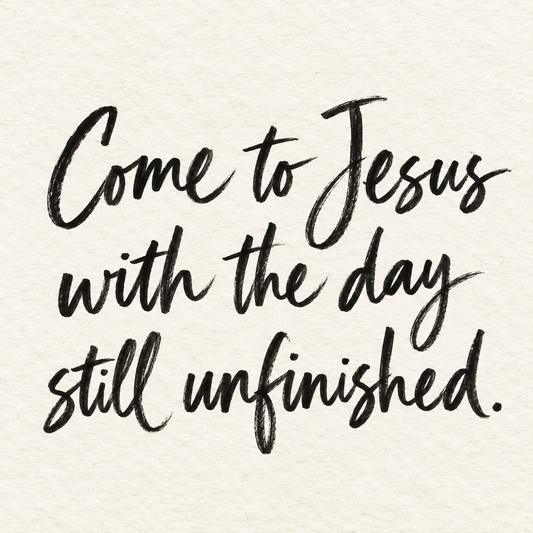 Come to Jesus
with the day
still unfinished.